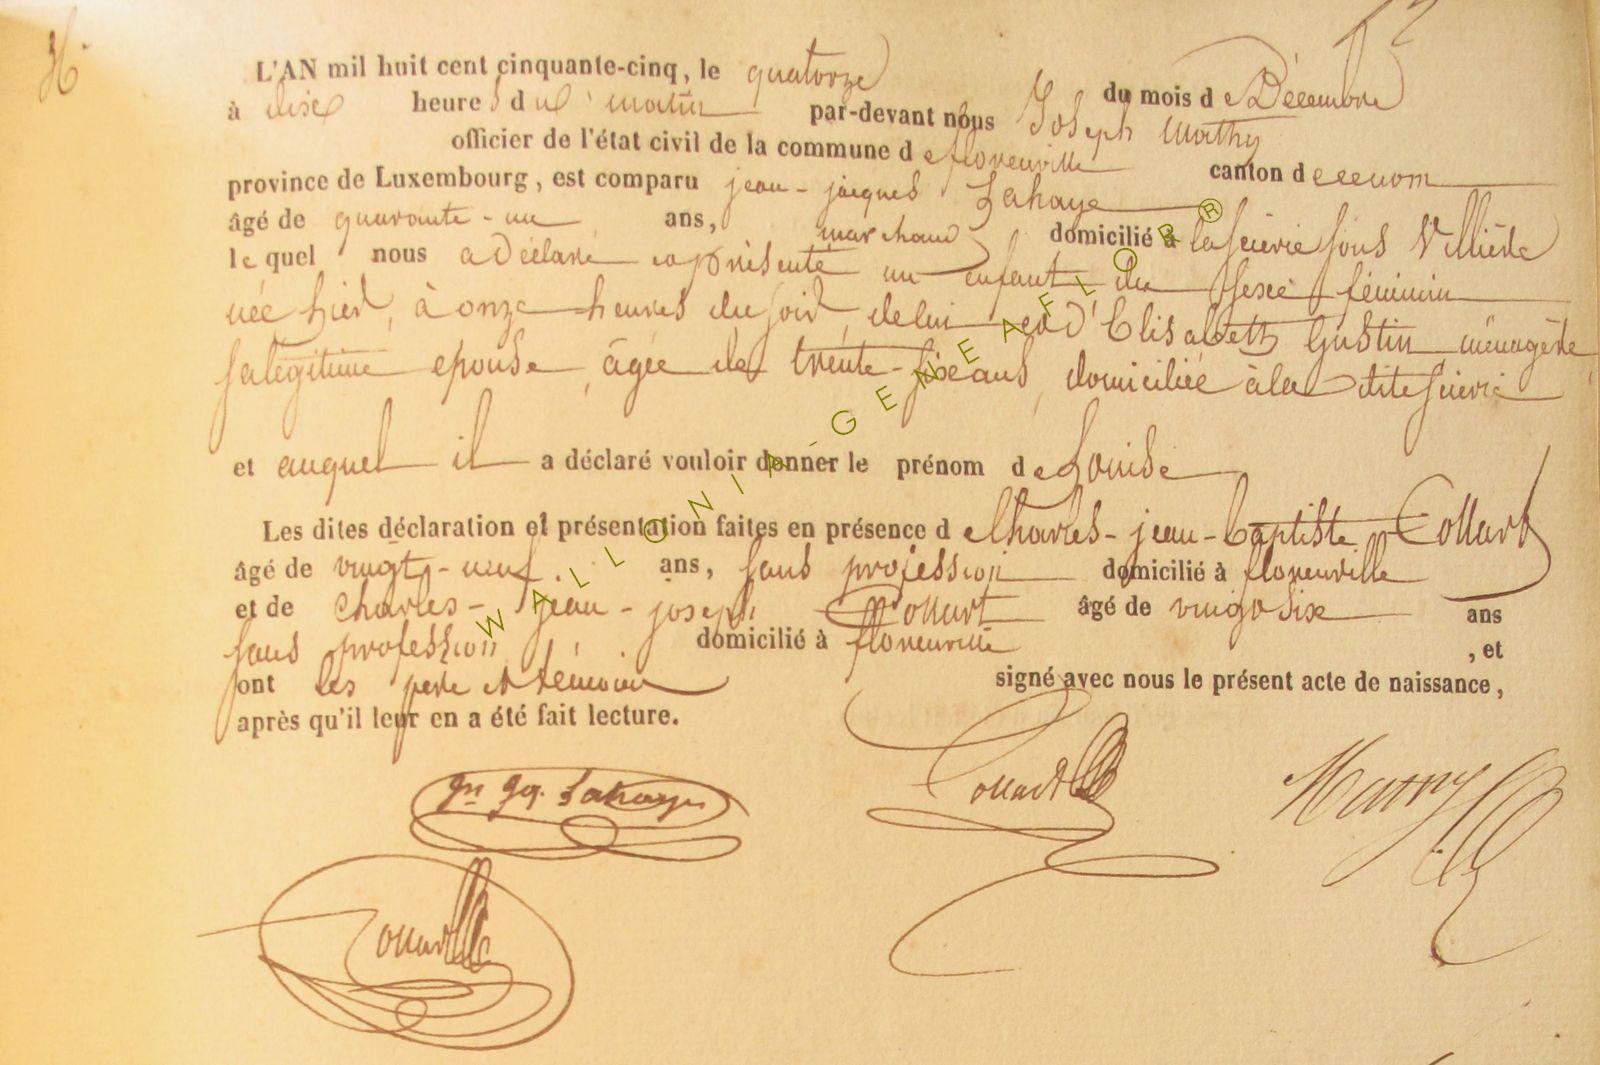 L'AN mil huit cent cinquante-cinq, le quatorze du mois de Décembre
à dix heures du matin par-devant nous Joseph Mathy
officier de l'état civil de la commune de florenville canton de
province de Luxembourg, est comparu jean-jacques Lahaye
âgé de quarante-un ans, marchand domicilié à la scierie sous Villière
le quel nous a déclaré et présenté un enfant du sexe féminin
née hier, à onze heures du soir, de lui et d'Elisabeth Gustin ménagère
sa légitime epouse, âgée de trente-six ans, domiciliée à la dite scierie
et auquel il a déclaré vouloir donner le prénom de Louise
Les dites déclaration et présentation faites en présence de Charles-jean-baptiste Collart
âgé de vingt-neuf ans, sans profession domicilié à florenville
et de Charles-jean-joseph Collart âgé de vingt six ans
sans profession domicilié à florenville, et
ont les père et témoins signé avec nous le présent acte de naissance,
après qu'il leur en a été fait lecture.
Jn Jq. Lahaye Collart Mathy
Collart
WALLONIA-GENEAFLOR®